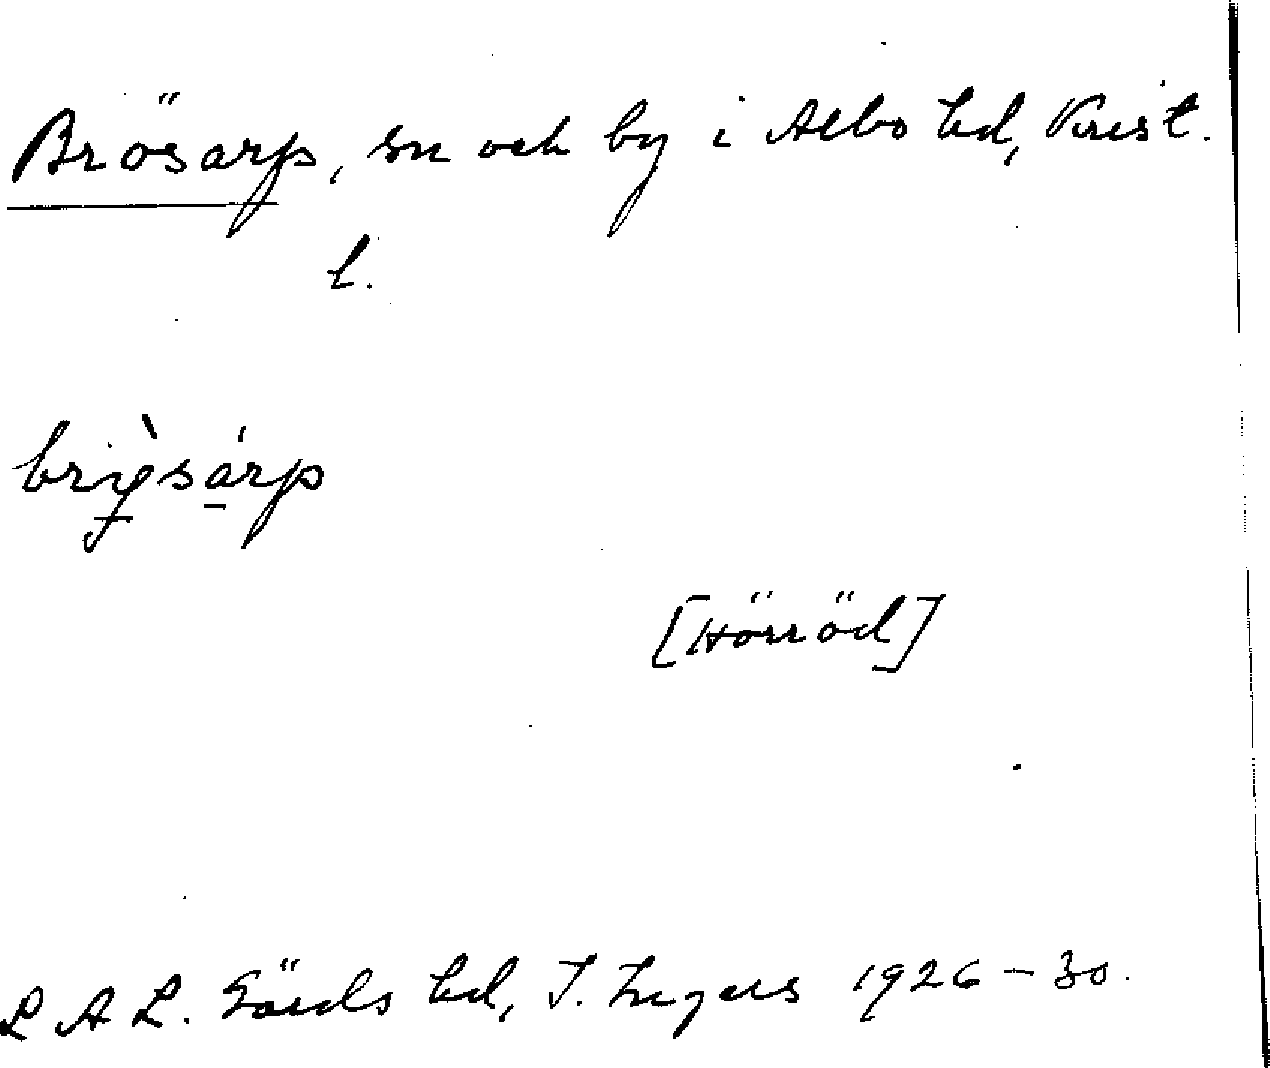 Brösarp, sn och by i Albo hd, Krist.
l.
brỳsárp
[Hörröd]
L A L. Gärds hd, I. Ingers 1926–30.